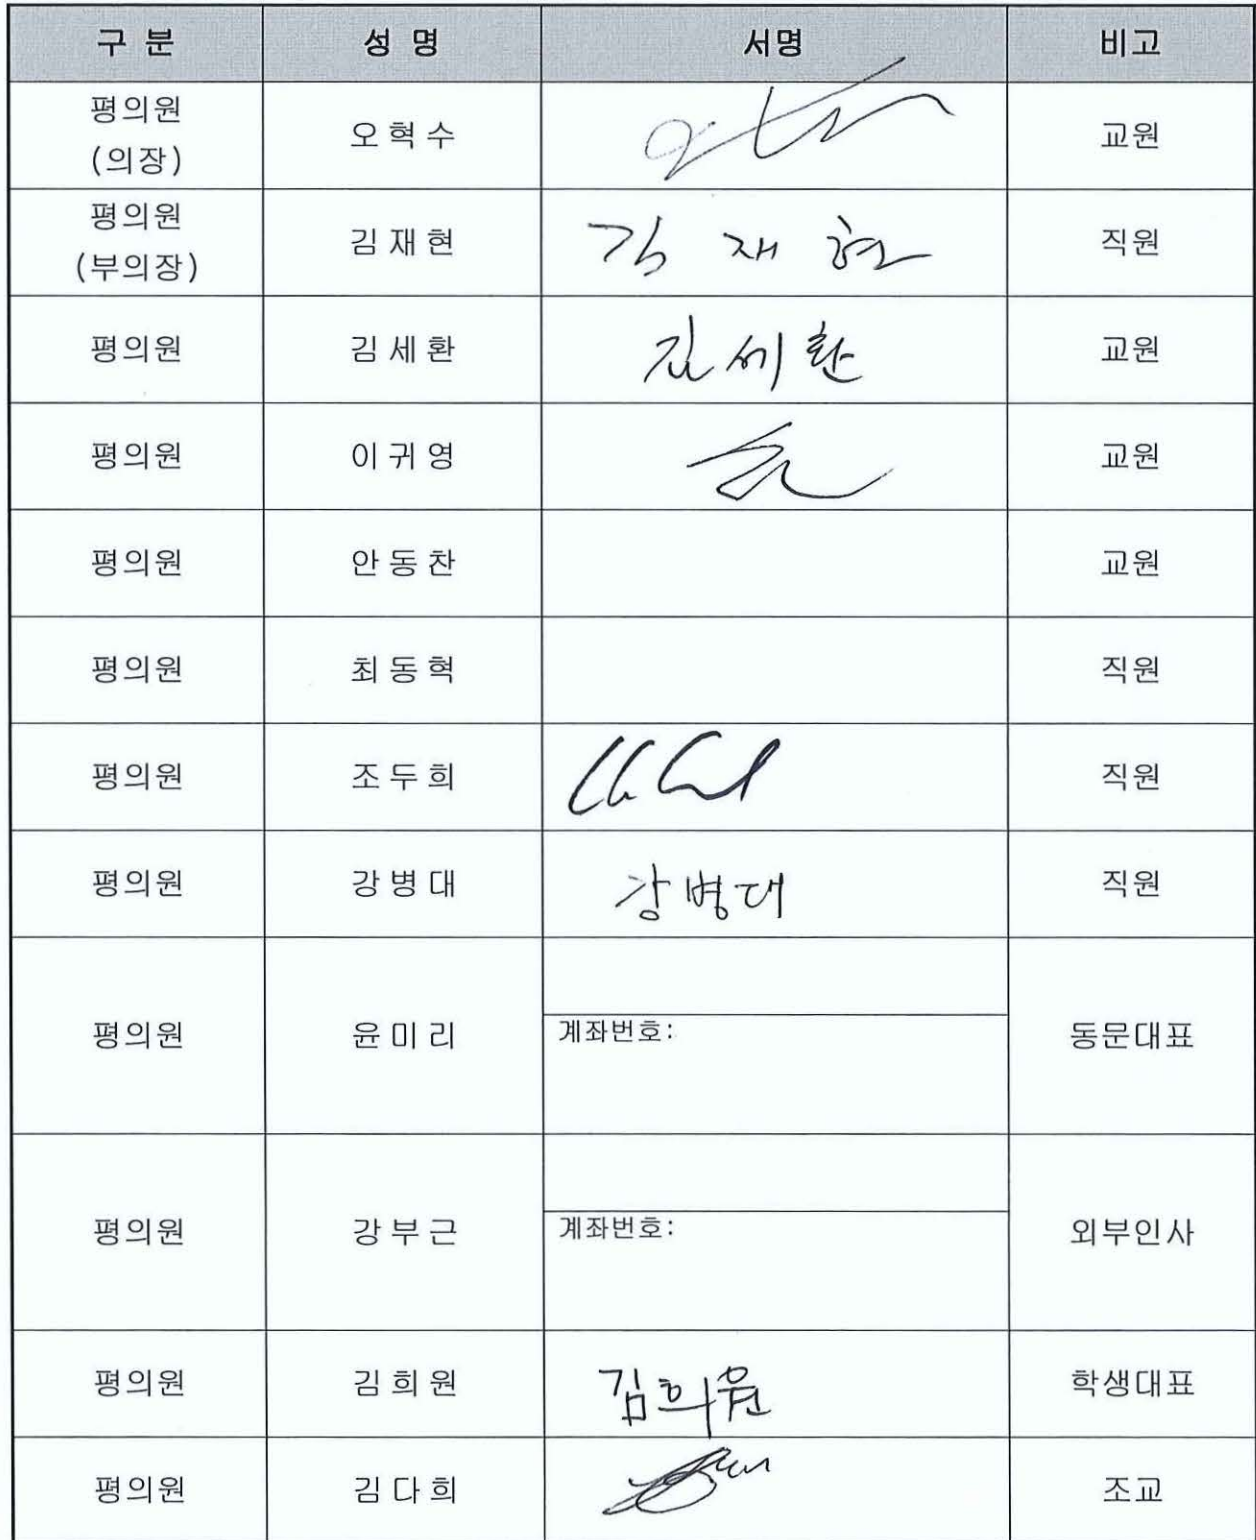 구 분 성 명 서명 비고
평의원
(의장) 오 혁 수 교원
평의원
(부의장) 김 재 현 김 재 현 직원
평의원 김 세 환 김세환 교원
평의원 이 귀 영 교원
평의원 안 동 찬 교원
평의원 최 동 혁 직원
평의원 조 두 희 직원
평의원 강 병 대 강병대 직원
평의원 윤 미 리 계좌번호: 동문대표
평의원 강 부 근 계좌번호: 외부인사
평의원 김 희 원 김희원 학생대표
평의원 김 다 희 조교